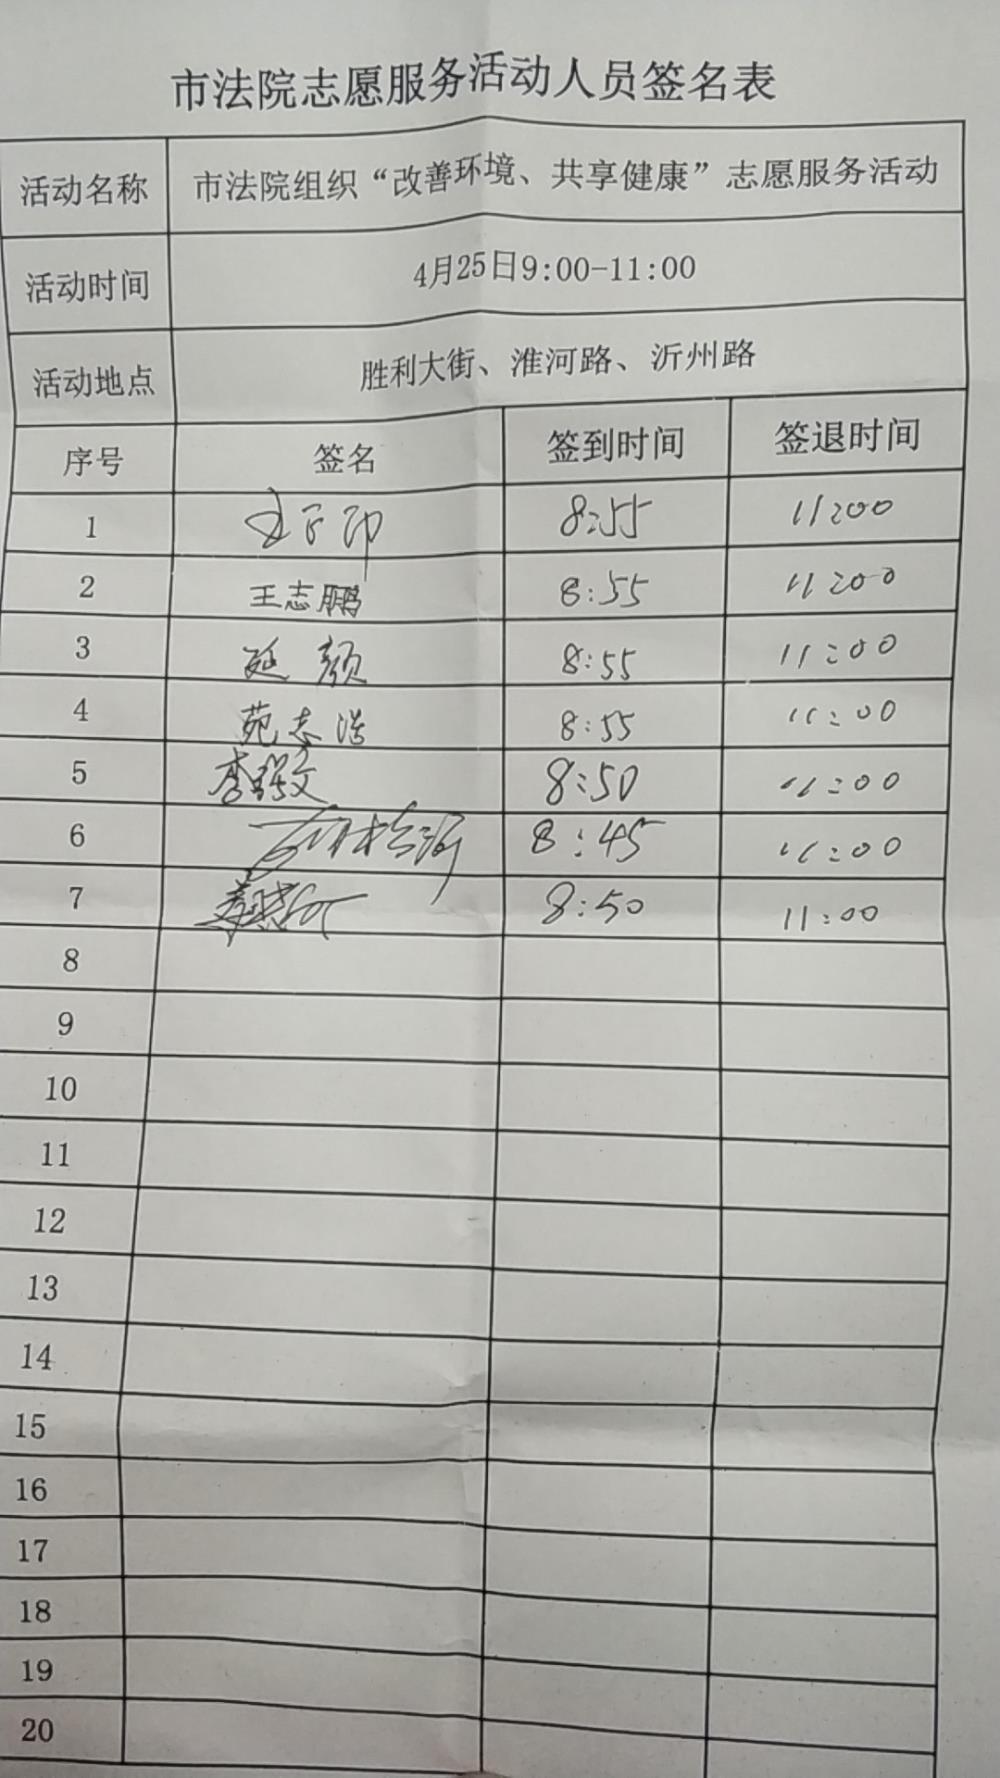 市法院志愿服务活动人员签名表
活动名称 市法院组织“改善环境、共享健康”志愿服务活动
活动时间 4月25日9:00-11:00
活动地点 胜利大街、淮河路、沂州路
序号 签名 签到时间 签退时间
1 8:55 11:00
2 王志鹏 8:55 11:00
3 延颜 8:55 11:00
4 苑志浩 8:55 11:00
5 8:50 11:00
6 8:45 11:00
7 8:50 11:00
8
9
10
11
12
13
14
15
16
17
18
19
20